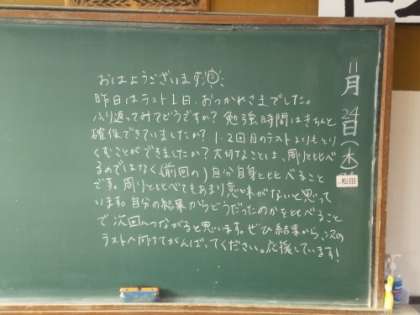 おはようございます😊
昨日はテスト1日、おつかれさまでした。
ふり返ってみてどうですか？勉強時間はきちんと
確保できていましたか？1・2回目のテストよりもとり
くむことができましたか？大切なことは、周りとくらべ
るのではなく（前回の）自分自身とくらべること
です。周りとくらべてもあまり意味がないと思って
います。自分の結果からどうだったのかをくらべること
で次回へつながると思います。ぜひ結果から、次の
テストへ向けてがんばってください。応援しています！
11月24日（木）
松田